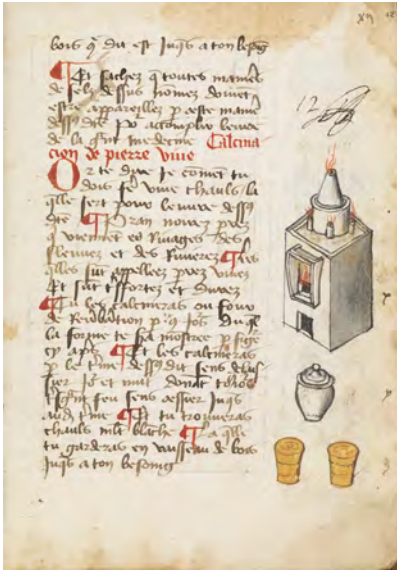 xij
bois q̃ dit est Juq̃s a ton besoĩg
¶ Et sachez q̃ toutes manie's
de selz dessus nomez doiuẽt
estre appareillez p ceste manie'
dess9 dite po' accomplir leuure
de la medecine Calcina
cion de pierre viue
Or te Je comẽt tu
dois fe' viue chaulx la
q̃lle sert pour leuure dess9
dte ¶ Pran noirez prez
q viennẽt es Riuages des
fleuues et des Riueres ¶ les
q̃lles sũt appellees prez viues
Et sũt tsfortez et durez
¶ Tu les calcineras ou four
de p 9 Jo's Duq̃l
la forme te sa mostree p fig̃e
cy aps ¶ Et les calcineras
p le t'me dess9 dit sens
Jo' et nuit donãt
feu sens cesser Juq̃s
aud' t'me ¶ Et tu trouueras
chaulx mlt blãche ¶ La q̃lle
tu garderas en vaisseau de bois
Juq̃s a ton besoing
12